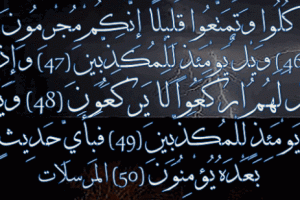 كُلُوا وَتَمَتَّعُوا قَلِيلًا إِنَّكُم مُّجْرِمُونَ
(46) وَيْلٌ يَوْمَئِذٍ لِّلْمُكَذِّبِينَ (47) وَإِذَا
لَهُمُ ارْكَعُوا لَا يَرْكَعُونَ (48) وَيْلٌ
يَوْمَئِذٍ لِّلْمُكَذِّبِينَ (49) فَبِأَيِّ حَدِيثٍ
بَعْدَهُ يُؤْمِنُونَ (50) المرسلات